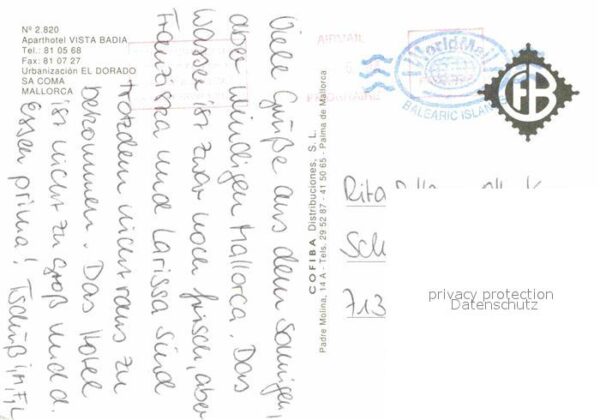 Nº 2.820
Aparthotel VISTA BADIA
Tel.: 81 05 68
Fax: 81 07 27
Urbanización EL DORADO
SA COMA
MALLORCA
Viele Grüße aus dem sonnigen,
aber windigen Mallorca. Das
Wasser ist zwar noch frisch, aber
Franziska und Larissa sind
trotzdem nicht raus zu
bekommen. Das Hotel
ist nicht zu groß und d.
Essen prima! Tschüß
COFIBA Distribuciones, S. L.
Padre Molina, 14 A - Tels. 29 52 87 - 41 50 65 - Palma de Mallorca
AIRMAIL
WorldMail
BALEARIC ISLANDS
Rita
Sch
713
privacy protection
Datenschutz